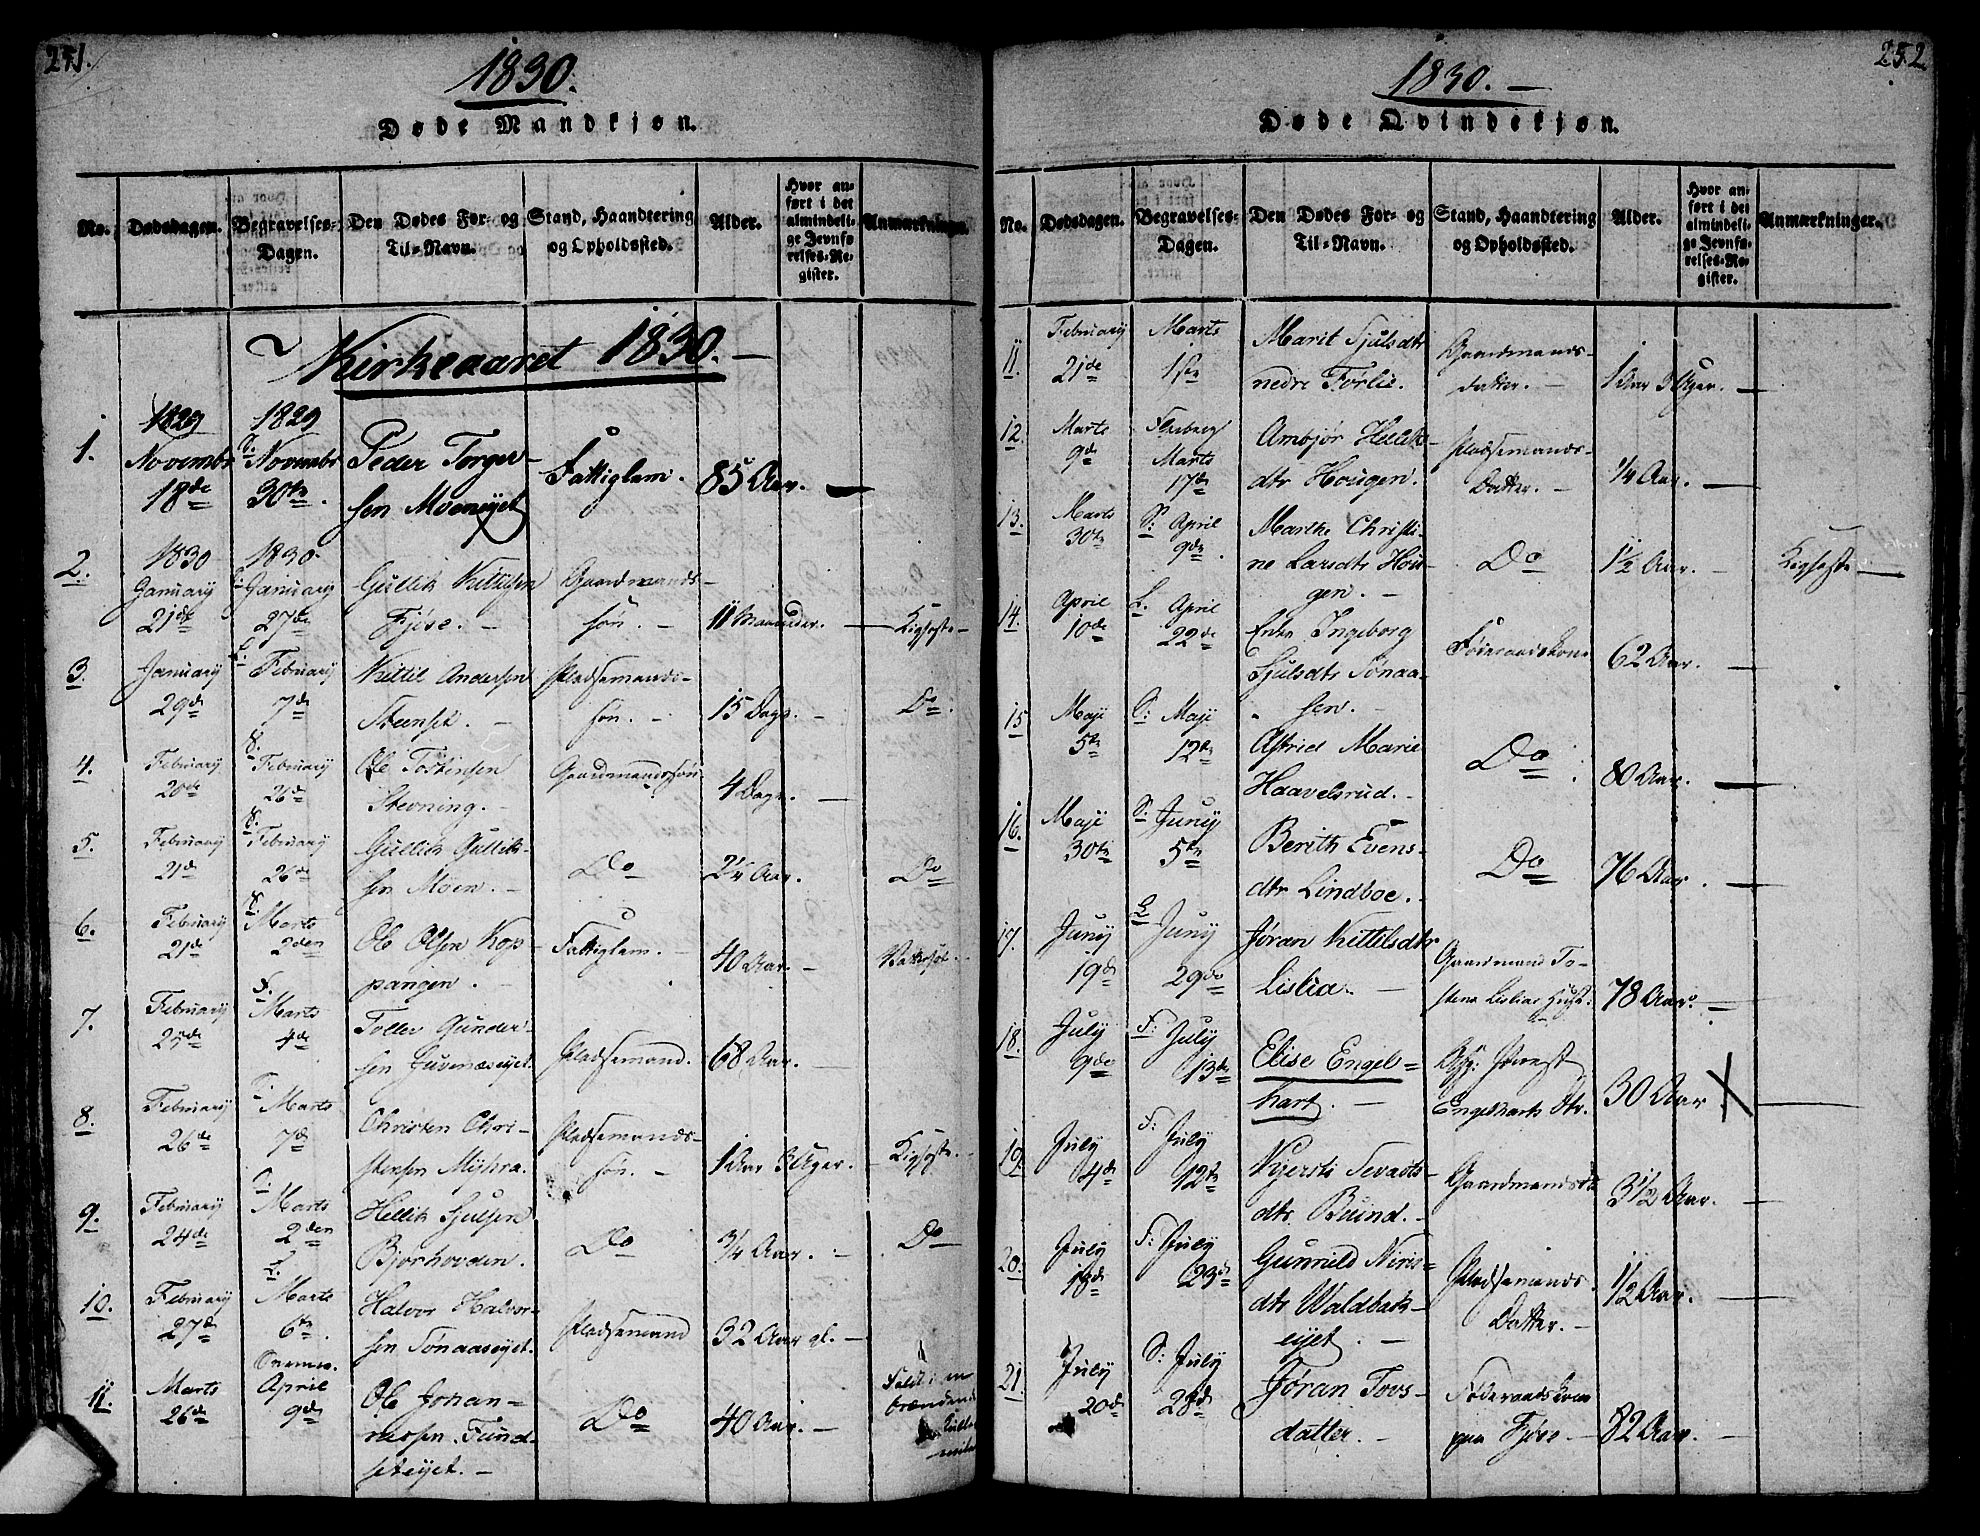 251.
1830.
Døde Mandkjøn.
No.
Dødsdagen.
Begravelses-
Dagen.
Den Dødes For- og
Til-Navn.
Stand, Haandtering
og Opholdssted.
Alder.
Hvor an-
ført i det
almindeli-
ge Jevnfø-
relses-Re-
gister.
Anmærkninger.
Kirkeaaret 1830.
1.
1829
Novembr
18de
1829
Novembr
30te
Peder Torger-
sen Moeneyet
Fattiglem.
85 Aar.
2.
1830
Januarij
21de
1830
Januarij
27de
Gullik Kittilsen
Fjøse.
Gaardmands-
søn.
11 Maaneder.
Kighoste
3.
Januarij
29de
L.
Februarij
7de
Kittil Andersen
Steenset.
Pladsemands-
søn.
15 Dage.
Do.
4.
Februarij
20de
S.
Februarij
26de
Ole Tostensen
Stevning.
Gaardmandssøn
4 Dage.
5.
Februarij
21de
S.
Februarij
26de
Gullik Gullik-
sen Moen.
Do
2¼ Aar.
Do
6.
Februarij
21de
S.
Marts
2den
Ole Olsen Kop-
pangen.
Fattiglem.
40 Aar.
Vattersot.
7.
Februarij
25de
F.
Marts
4de
Toller Gunder-
sen Juveneseyet.
Pladsemand.
68 Aar.
8.
Februarij
26de
Marts
7de
Christen Chri-
stensen Myhra.
Pladsemands-
søn.
1 Aar 3 Uger.
Kighoste.
9.
Februarij
24de
Marts
2den
Hellik Sjulsen
Bjørhovden.
Do
¾ Aar.
Do
10.
Februarij
27de
L.
Marts
6te
Halvor Halvor-
sen Tønaaseyet.
Pladsemand
32 Aar gl.
11.
Marts
26de
April
9de
Ole Johan-
nessen Fund-
seteyet.
Do
40 Aar.
Faldt i en
brændende
252
1830.
Døde Qvindekjøn.
No.
Dødsdagen.
Begravelses-
Dagen.
Den Dødes For- og
Til-Navn.
Stand, Haandtering
og Opholdssted.
Alder.
Hvor an-
ført i det
almindeli-
ge Jevnfø-
relses-Re-
gister.
Anmærkninger.
11.
Februarij
21de
Marts
1ste
Marit Sjulsdtr
nedre Førlie.
Gaardmands-
datter.
1 Aar 3 Uger.
12.
Marts
9de
Flesberg
Marts
17de
Ambjør Hellik-
dtr Hougen.
Pladsemands-
Datter.
¼ Aar.
13.
Marts
30te
S:
April
9de
Marthe Christi-
ne Larsdtr Hou-
gen.
Do
1½ Aar.
Kighoste
14.
April
10de
L.
April
22de
Enke Ingeborg
Sjulsdtr Tønaa-
sen.
Føderaadskone
62 Aar.
15
Maji
5te
S:
Maji
12te
Astrid Marie
Haavelsrud.
Do
80 Aar.
16.
Maji
30te
S:
Junij
5te
Berith Evens-
dtr Lindboe.
Do
76 Aar
17.
Junij
19de
L
Junij
29de
Jøran Kittelsdtr
Lislia.
Gaardmand To-
stens Lislias Hust:
78 Aar.
18.
July
9de
F:
July
13de
Elise Engel=
hart.
Engelharts Dtr.
30 Aar
X
19.
July
4de
F:
July
12te
Kjersti Sevats-
dtr Buind.
Gaardmandsdtr
3½ Aar.
20.
July
18de
F:
July
23de
Gunnild Niris-
dtr Waldbak-
eyet.
Pladsemands
Datter.
1½ Aar.
21.
July
20de
S:
July
28de
Jøran Tovs-
datter.
Føderaadskone
paa Fjøse.
82 Aar.